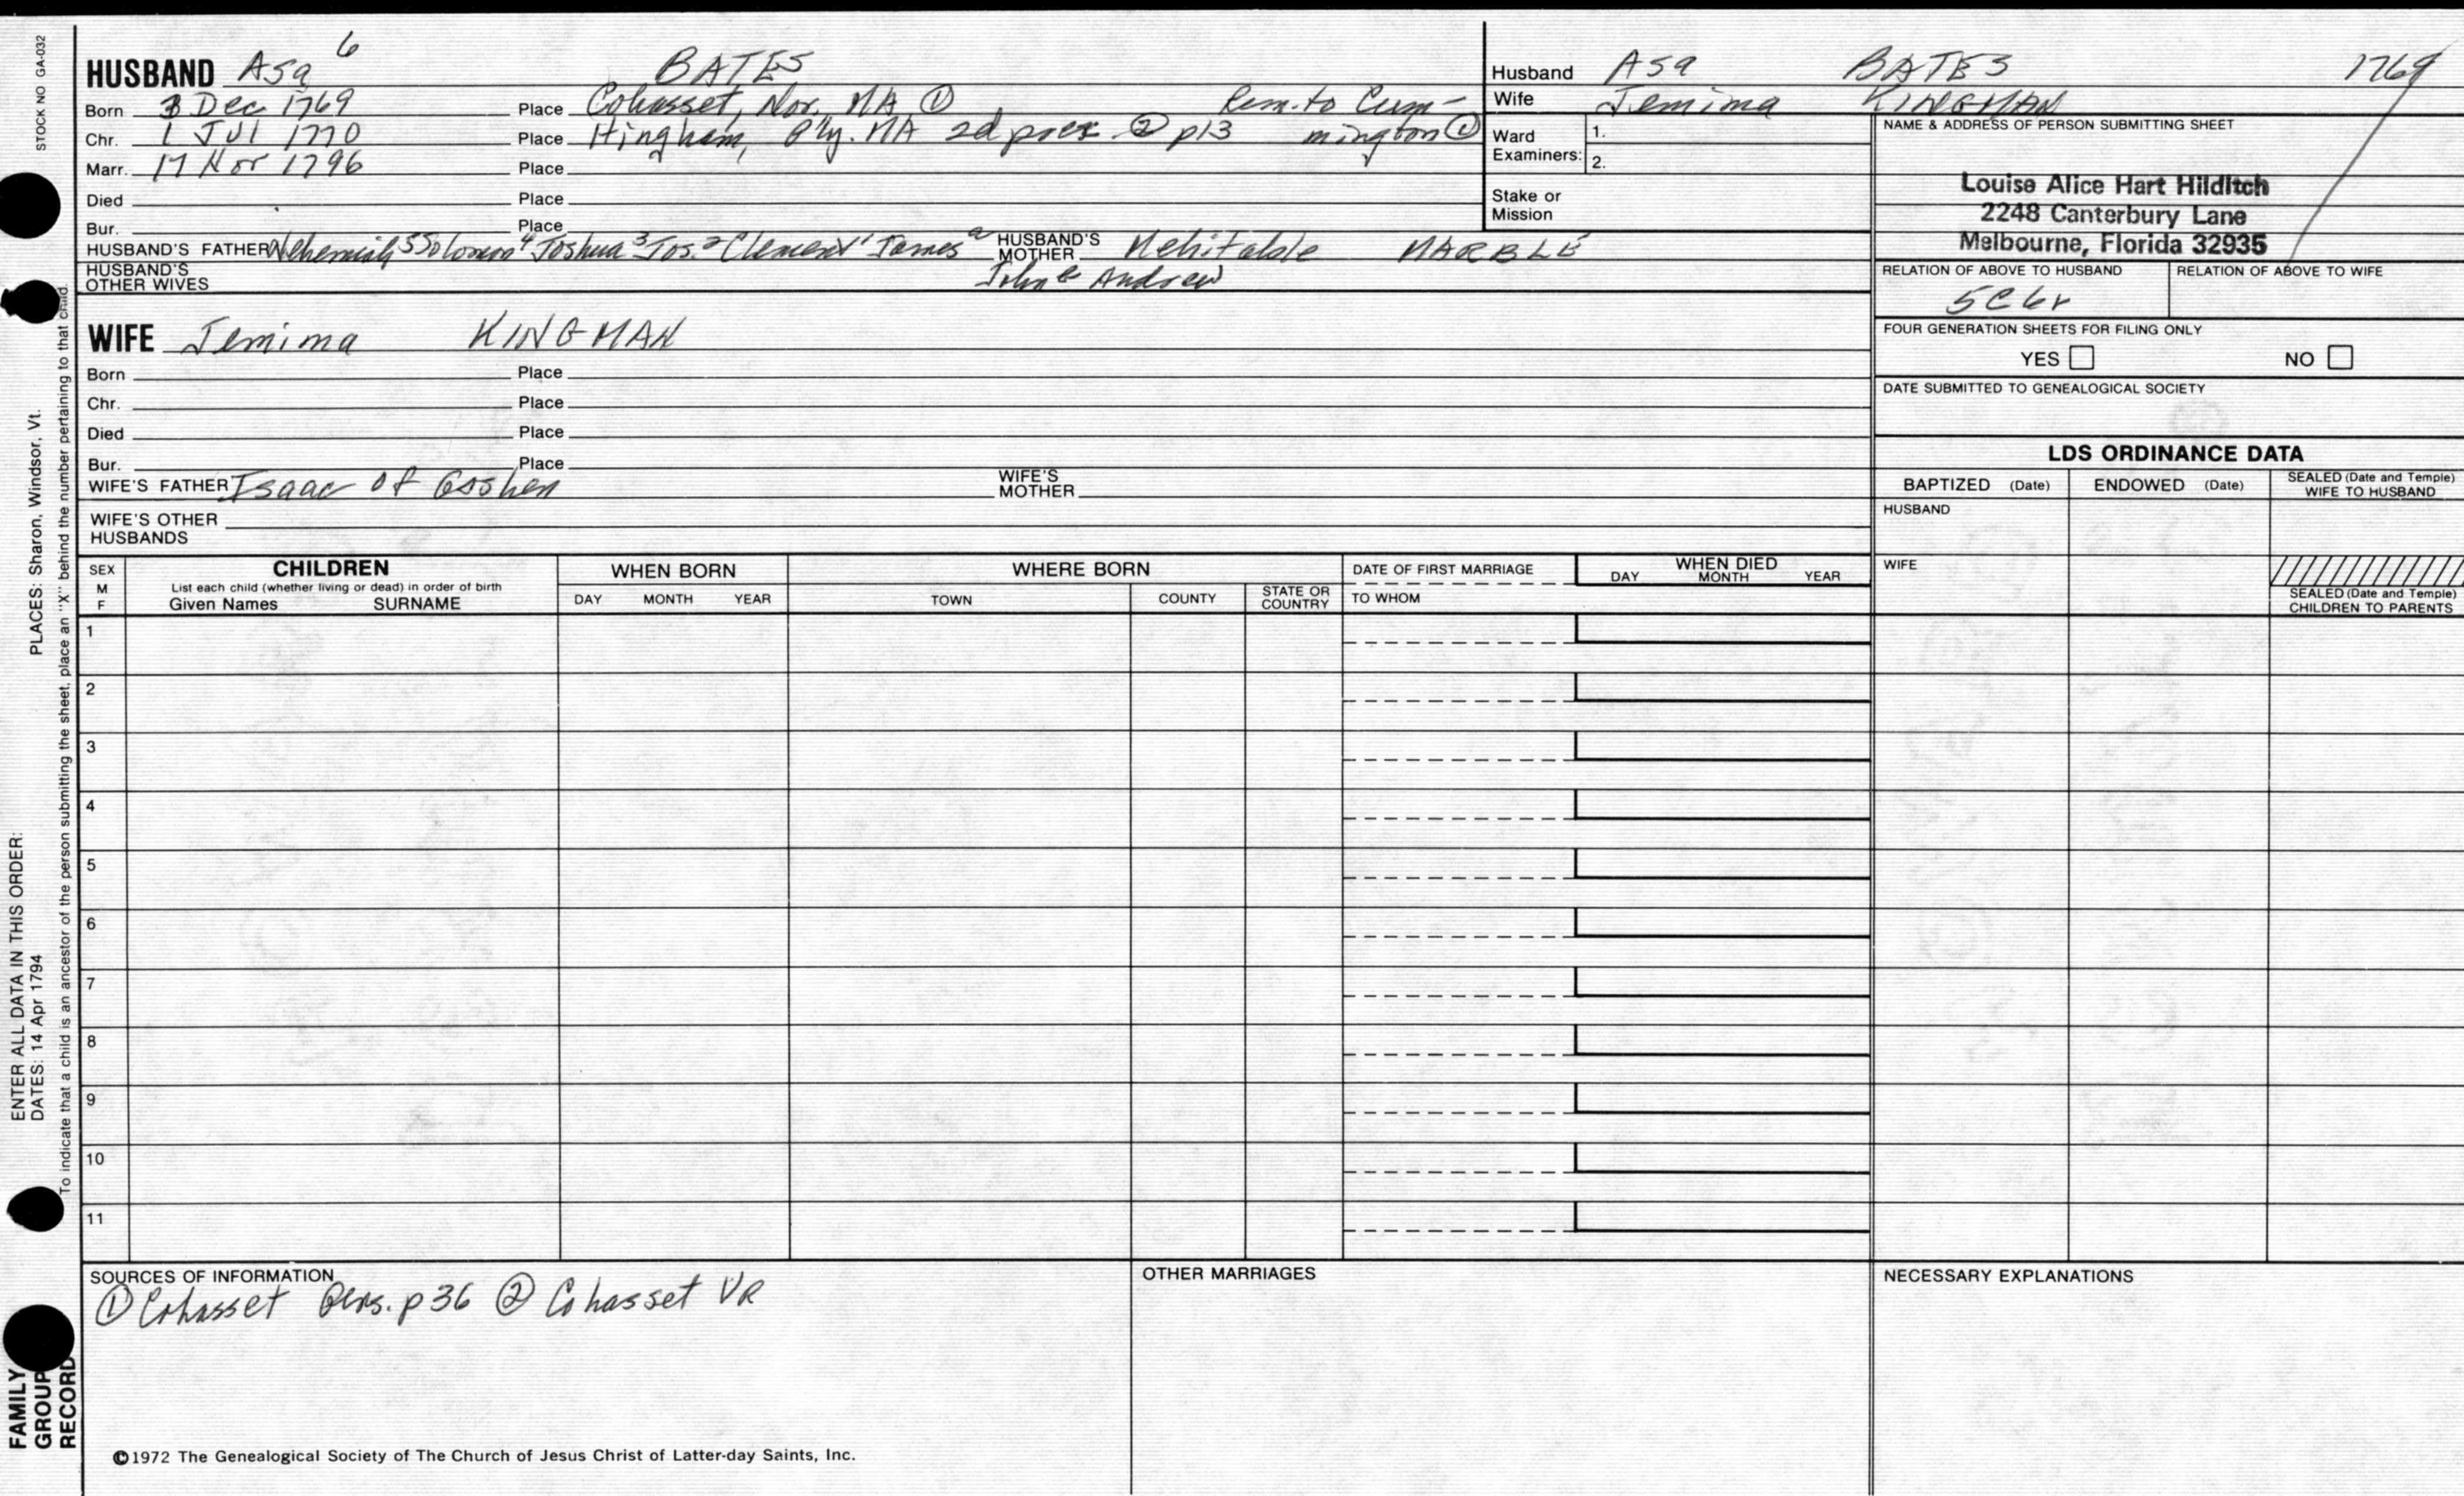 STOCK NO GA-032
HUSBAND Asa 6 BATES
Born 3 Dec 1769 Place Cohasset, Nor. MA ① Rem. to Cum-
Chr. 1 Jul 1770 Place Hingham, Ply. MA 2d prec ② p13 mington ①
Marr. 17 Nov 1796 Place
Died Place
Bur. Place
HUSBAND'S FATHER Nehemiah 5 Solomon 4 Joshua 3 Jos. 2 Clement 1 James a HUSBAND'S MOTHER Mehitable MARBLE
HUSBAND'S OTHER WIVES John Andrew
Husband Asa BATES 1769
Wife Jemima KINGMAN
Ward Examiners: 1.
2.
Stake or Mission
NAME & ADDRESS OF PERSON SUBMITTING SHEET
Louise Alice Hart Hilditch
2248 Canterbury Lane
Melbourne, Florida 32935
RELATION OF ABOVE TO HUSBAND RELATION OF ABOVE TO WIFE
5C6r
FOUR GENERATION SHEETS FOR FILING ONLY
YES NO
DATE SUBMITTED TO GENEALOGICAL SOCIETY
WIFE Jemima KINGMAN
Born Place
Chr. Place
Died Place
Bur. Place
WIFE'S FATHER Isaac of Goshen WIFE'S MOTHER
WIFE'S OTHER HUSBANDS
LDS ORDINANCE DATA
BAPTIZED (Date) ENDOWED (Date) SEALED (Date and Temple) WIFE TO HUSBAND
HUSBAND
WIFE
SEALED (Date and Temple) CHILDREN TO PARENTS
SEX M F
CHILDREN
List each child (whether living or dead) in order of birth
Given Names SURNAME
WHEN BORN
DAY MONTH YEAR
WHERE BORN
TOWN COUNTY STATE OR COUNTRY
DATE OF FIRST MARRIAGE
TO WHOM
WHEN DIED
DAY MONTH YEAR
1
2
3
4
5
6
7
8
9
10
11
SOURCES OF INFORMATION
① Cohasset Gens. p 36 ② Cohasset VR
OTHER MARRIAGES
NECESSARY EXPLANATIONS
©1972 The Genealogical Society of The Church of Jesus Christ of Latter-day Saints, Inc.
FAMILY GROUP RECORD
ENTER ALL DATA IN THIS ORDER:
DATES: 14 Apr 1794 PLACES: Sharon, Windsor, Vt.
To indicate that a child is an ancestor of the person submitting the sheet, place an "X" behind the number pertaining to that child.